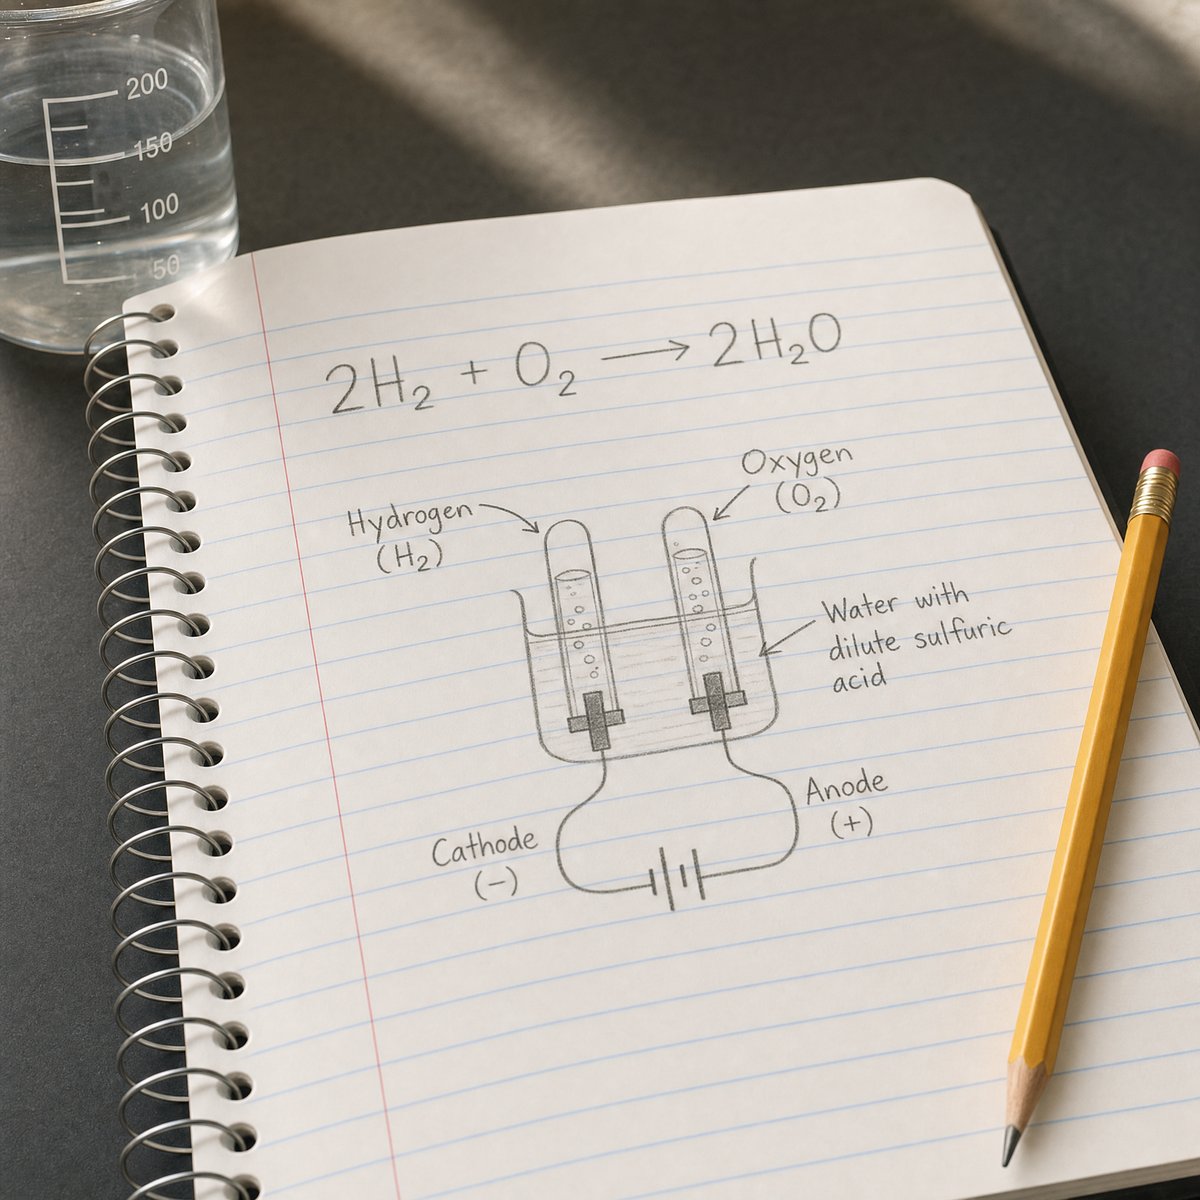 200
150
100
50
2H₂ + O₂ ⟶ 2H₂O
Oxygen
(O₂)
Hydrogen
(H₂)
Water with
dilute sulfuric
acid
Anode
(+)
Cathode
(−)